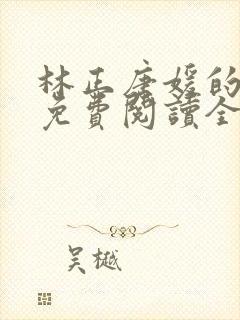 林正唐媛的
免費閱讀全
吴樾